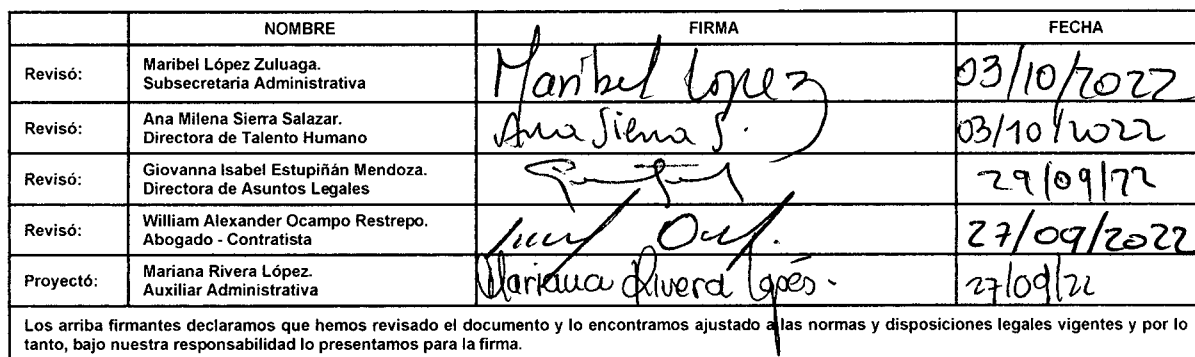 NOMBRE FIRMA FECHA
Revisó: Maribel López Zuluaga.
Subsecretaria Administrativa Maribel Lopez 03/10/2022
Revisó: Ana Milena Sierra Salazar.
Directora de Talento Humano Ana Sierra S. 03/10/2022
Revisó: Giovanna Isabel Estupiñán Mendoza.
Directora de Asuntos Legales 29/09/22
Revisó: William Alexander Ocampo Restrepo.
Abogado - Contratista 27/09/2022
Proyectó: Mariana Rivera López.
Auxiliar Administrativa Mariana Rivera López. 27/09/22
Los arriba firmantes declaramos que hemos revisado el documento y lo encontramos ajustado a las normas y disposiciones legales vigentes y por lo
tanto, bajo nuestra responsabilidad lo presentamos para la firma.